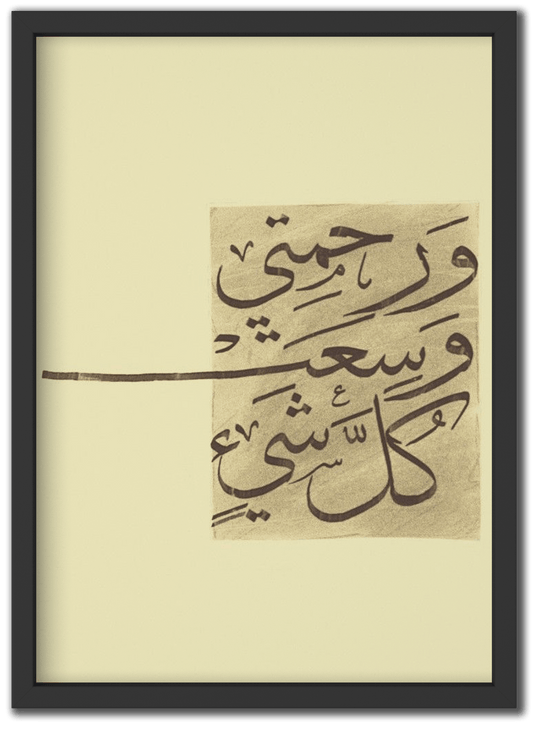 وَرَحمَتِي
وَسِعَتْ
كُلَّ شَيْءٍ